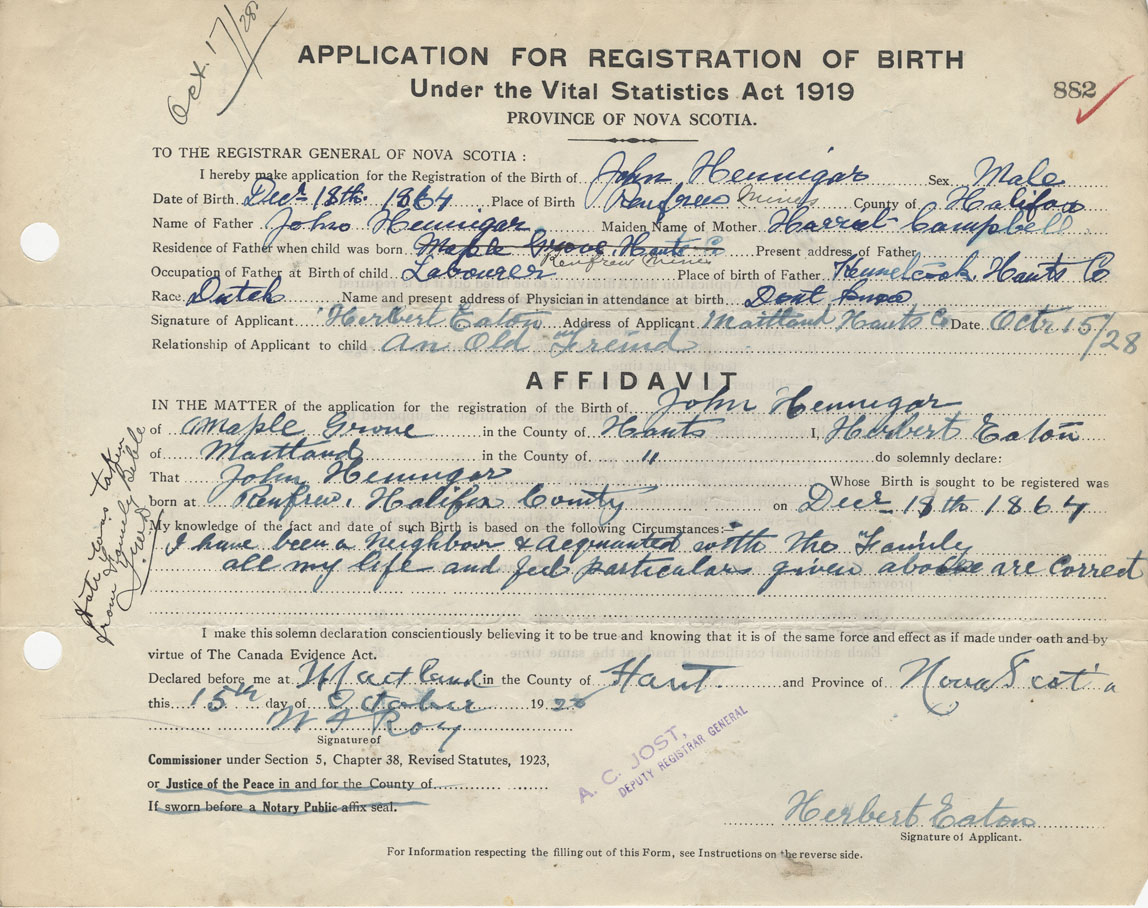 Oct. 17/28
APPLICATION FOR REGISTRATION OF BIRTH
Under the Vital Statistics Act 1919
882
PROVINCE OF NOVA SCOTIA.
TO THE REGISTRAR GENERAL OF NOVA SCOTIA :
I hereby make application for the Registration of the Birth of John Hennigar Sex Male
Date of Birth Decr 18th 1864 Place of Birth Renfrew Mines County of Halifax
Name of Father John Hennigar Maiden Name of Mother Harriet Campbell
Residence of Father when child was born Maple Grove Hants Co Present address of Father
Renfrew Mines
Occupation of Father at Birth of child Labourer Place of birth of Father Kennetcook Hants Co
Race Dutch Name and present address of Physician in attendance at birth Dont know
Signature of Applicant Herbert Eaton Address of Applicant Maitland Hants Co Date Octr 15/28
Relationship of Applicant to child An Old Freind
AFFIDAVIT
IN THE MATTER of the application for the registration of the Birth of John Hennigar
of Maple Grove in the County of Hants I, Herbert Eaton
of Maitland in the County of " do solemnly declare:
That John Hennigar Whose Birth is sought to be registered was
born at Renfrew, Halifax County on Decr 18th 1864
My knowledge of the fact and date of such Birth is based on the following Circumstances:-
I have been a Neighbour & Acquanted with the Family
all my life and feel particulars given above are correct
from Family Bible
I make this solemn declaration conscientiously believing it to be true and knowing that it is of the same force and effect as if made under oath and by
virtue of The Canada Evidence Act.
Declared before me at Maitland in the County of Hant and Province of Nova Scotia
this 15th day of October 1928
Signature of
Commissioner under Section 5, Chapter 38, Revised Statutes, 1923,
or Justice of the Peace in and for the County of
If sworn before a Notary Public affix seal.
A. C. JOST,
DEPUTY REGISTRAR GENERAL
Herbert Eaton
Signature of Applicant.
For Information respecting the filling out of this Form, see Instructions on the reverse side.